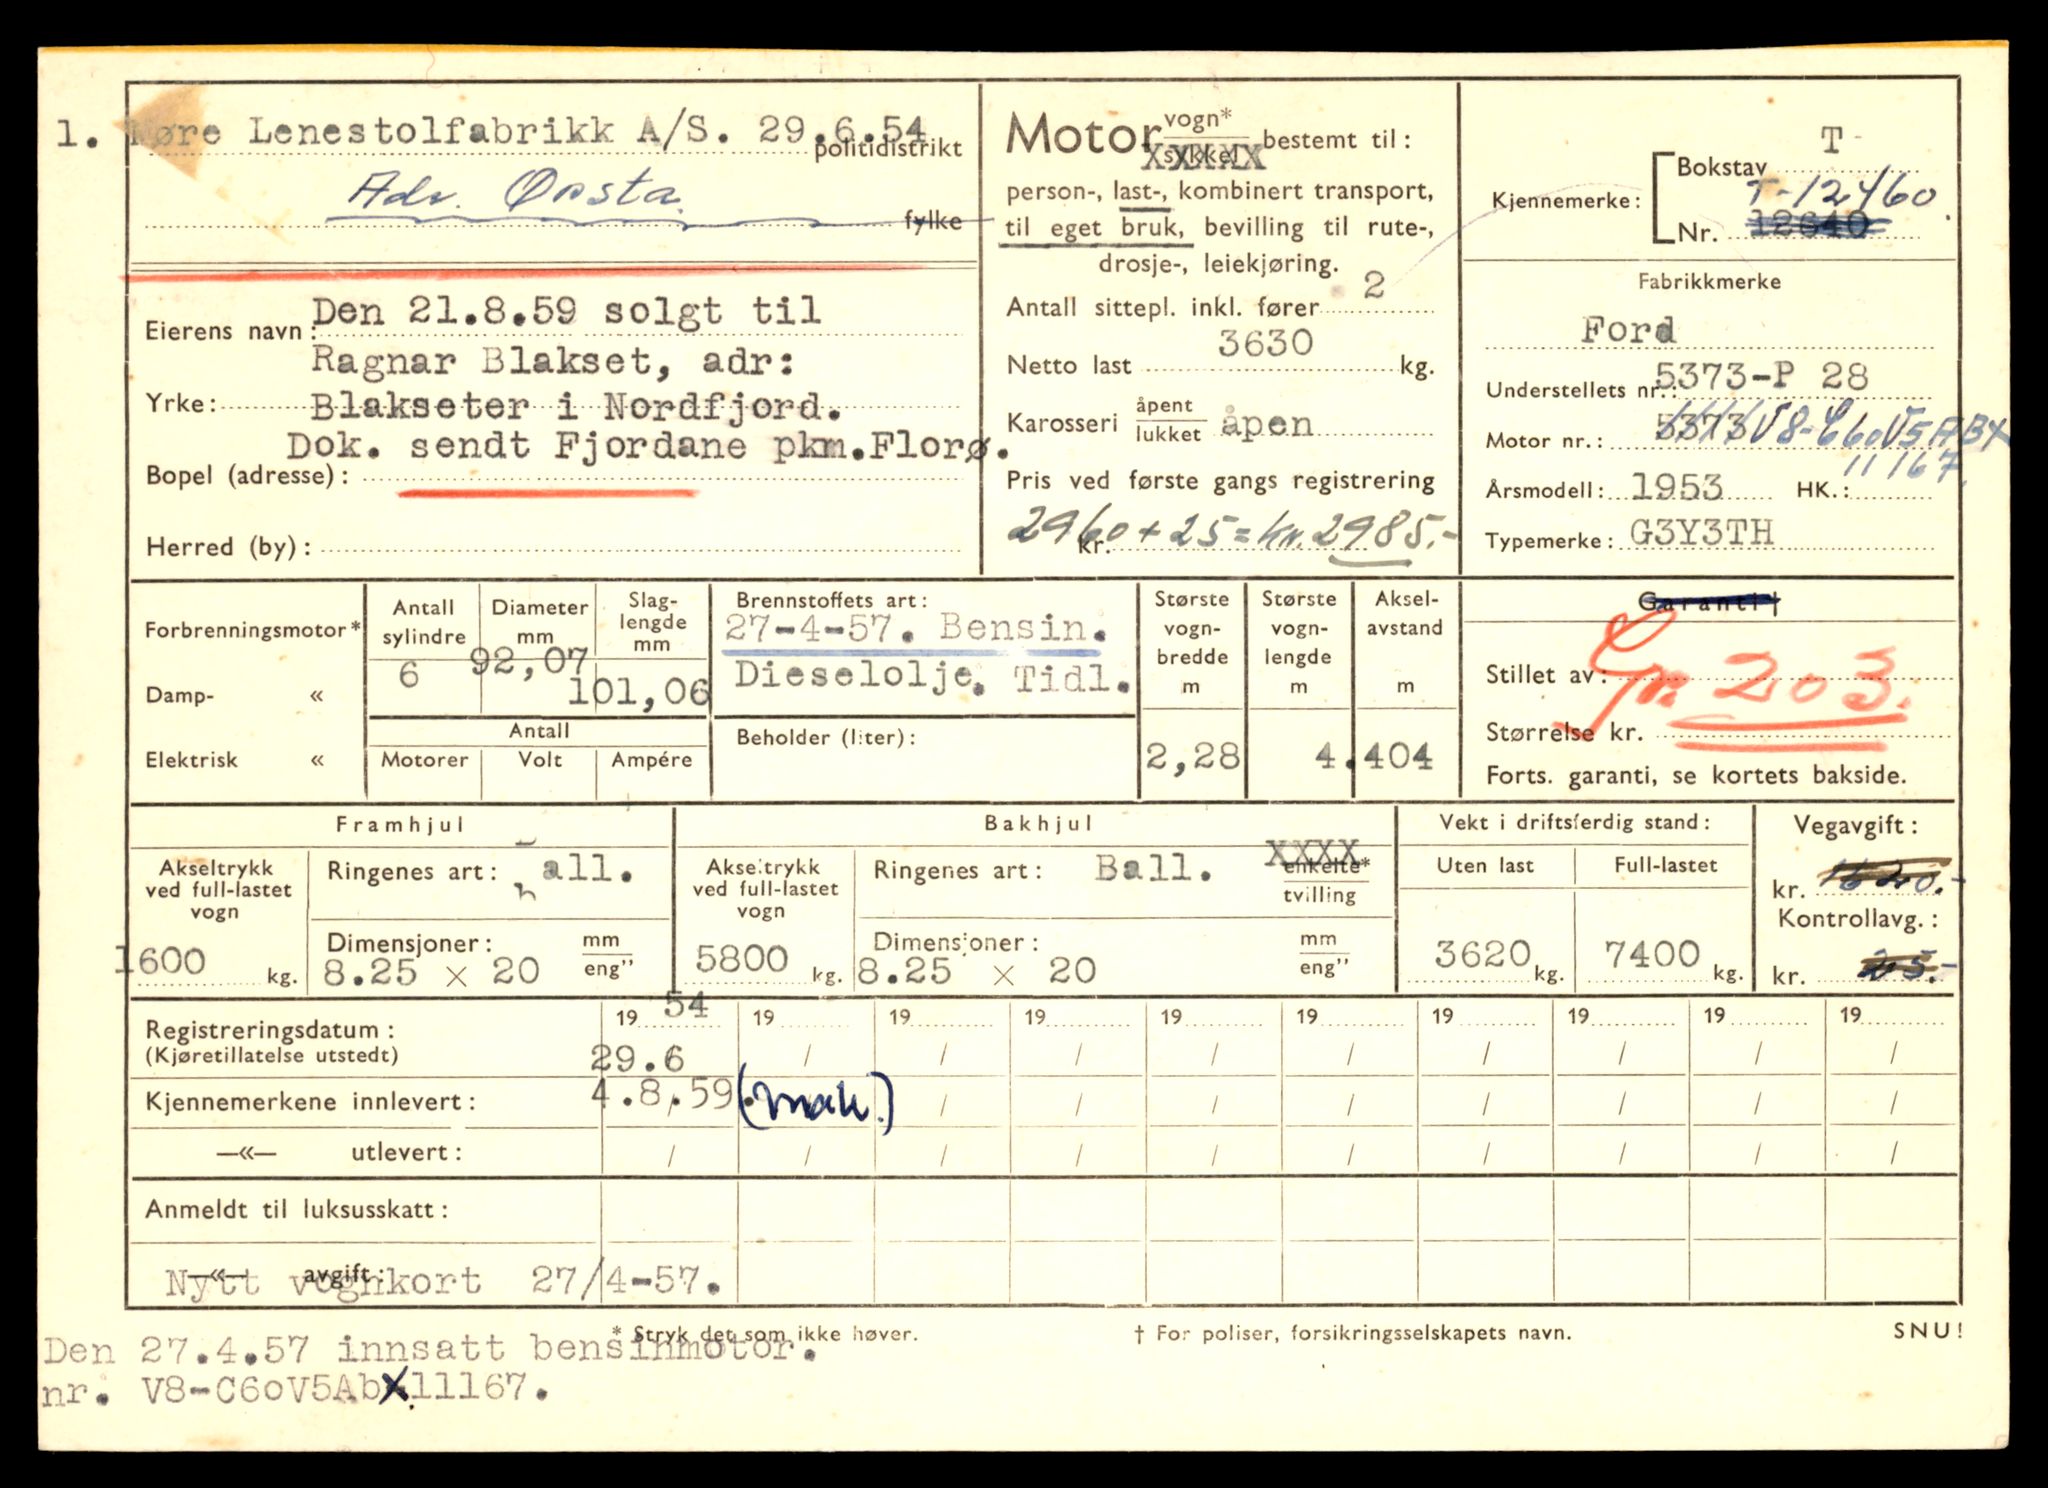 1. Møre Lenestolfabrikk A/S. 29.6.54
politidistrikt
Adr. Ørsta.
fylke
Eierens navn: Den 21.8.59 solgt til
Ragnar Blakset, adr:
Yrke: Blakseter i Nordfjord.
Dok. sendt Fjordane pkm.Florø.
Bopel (adresse):
Herred (by):
Motor vogn* / sykkel XXXXX bestemt til:
person-, last-, kombinert transport,
til eget bruk, bevilling til rute-,
drosje-, leiekjøring.
Antall sittepl. inkl. fører 2
Netto last 3630 kg.
Karosseri åpent / lukket åpen
Pris ved første gangs registrering
kr. 2960 + 25 = kr. 2985.-
Kjennemerke: Bokstav T
T-12460.
Nr. 12640
Fabrikkmerke
Ford
Understellets nr.: 5373-P 28
Motor nr.: 5373 V8-C60V5ABX
11167.
Årsmodell: 1953 HK.:
Typemerke: G3Y3TH
Forbrenningsmotor*
Damp- «
Elektrisk «
Antall sylindre
6
Diameter mm
92,07
Slag-lengde mm
101,06
Antall
Motorer Volt Ampére
Brennstoffets art:
27-4-57. Bensin.
Dieselolje. Tidl.
Beholder (liter):
Største vogn-bredde m
2,28
Største vogn-lengde m
Aksel-avstand m
4.404
Garanti†
Stillet av: Gr 203.
Størrelse kr.
Forts. garanti, se kortets bakside.
Framhjul
Akseltrykk ved full-lastet vogn
1600 kg.
Ringenes art: all.
Dimensjoner: mm / eng"
8.25 × 20
Bakhjul
Akseltrykk ved full-lastet vogn
5800 kg.
Ringenes art: Ball. XXXX enkelte* / tvilling
Dimensjoner: mm / eng"
8.25 × 20
Vekt i driftsferdig stand:
Uten last Full-lastet
3620 kg. 7400 kg.
Vegavgift:
kr. 1620.-
Kontrollavg.:
kr. 25.-
Registreringsdatum: 19 54 19 19 19 19 19 19 19 19 19
(Kjøretillatelse utstedt) 29.6 / / / / / / / / /
Kjennemerkene innlevert: 4.8.59. (mak.) / / / / / / / /
—«— utlevert: / / / / / / / / / /
Anmeldt til luksusskatt:
—«— avgift:
Nytt vognkort 27/4-57.
* Stryk det som ikke høver. † For poliser, forsikringsselskapets navn. SNU!
Den 27.4.57 innsatt bensinmotor.
nr. V8-C60V5AbX11167.